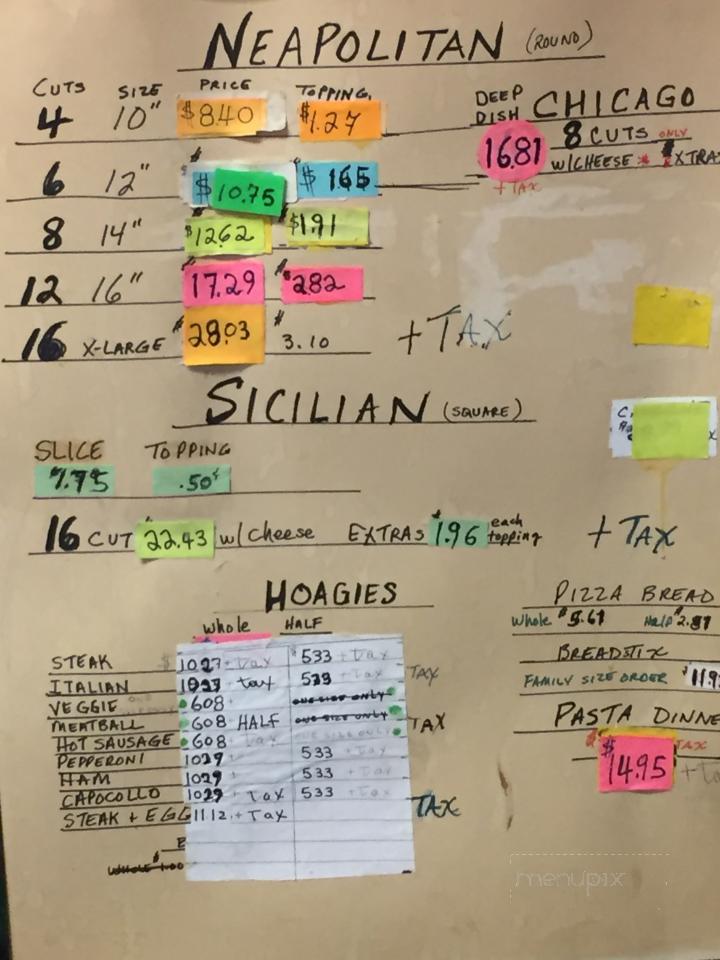 NEAPOLITAN (ROUND)
CUTS SIZE PRICE TOPPING
4 10" $8.40 $1.27
6 12" $10.75 $1.65
8 14" $12.62 $1.91
12 16" $17.29 $2.82
16 X-LARGE $28.03 $3.10
+ TAX
DEEP DISH CHICAGO
16.81 8 CUTS ONLY
W/CHEESE
+ TAX
SICILIAN (SQUARE)
SLICE TOPPING
.50¢
16 CUT 22.43 w/Cheese EXTRAS $1.96 each topping
+ TAX
HOAGIES
Whole HALF
STEAK 1027 + tax $533 + tax
ITALIAN + tax TAX
VEGGIE 608 ONE SIZE ONLY
MEATBALL 608 HALF ONE SIZE ONLY TAX
HOT SAUSAGE 608 tax ONE SIZE ONLY
PEPPERONI 1029 533 + tax
HAM 1029 533 + tax
CAPOCOLLO 1029 + Tax 533 + tax TAX
STEAK + EGG 11 12 + Tax
PIZZA BREAD
Whole Half
BREADSTIX
FAMILY SIZE ORDER
PASTA
$14.95 TAX
menupix